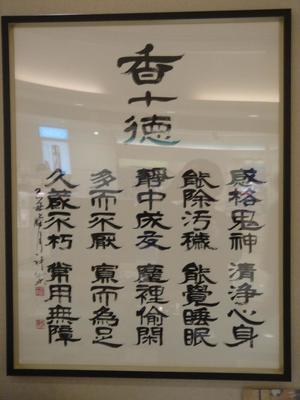 香十徳
感格鬼神 清淨心身
能除汚穢 能覺睡眠
靜中成友 塵裡偷閑
多而不厭 寡而為足
久蔵不朽 常用無障